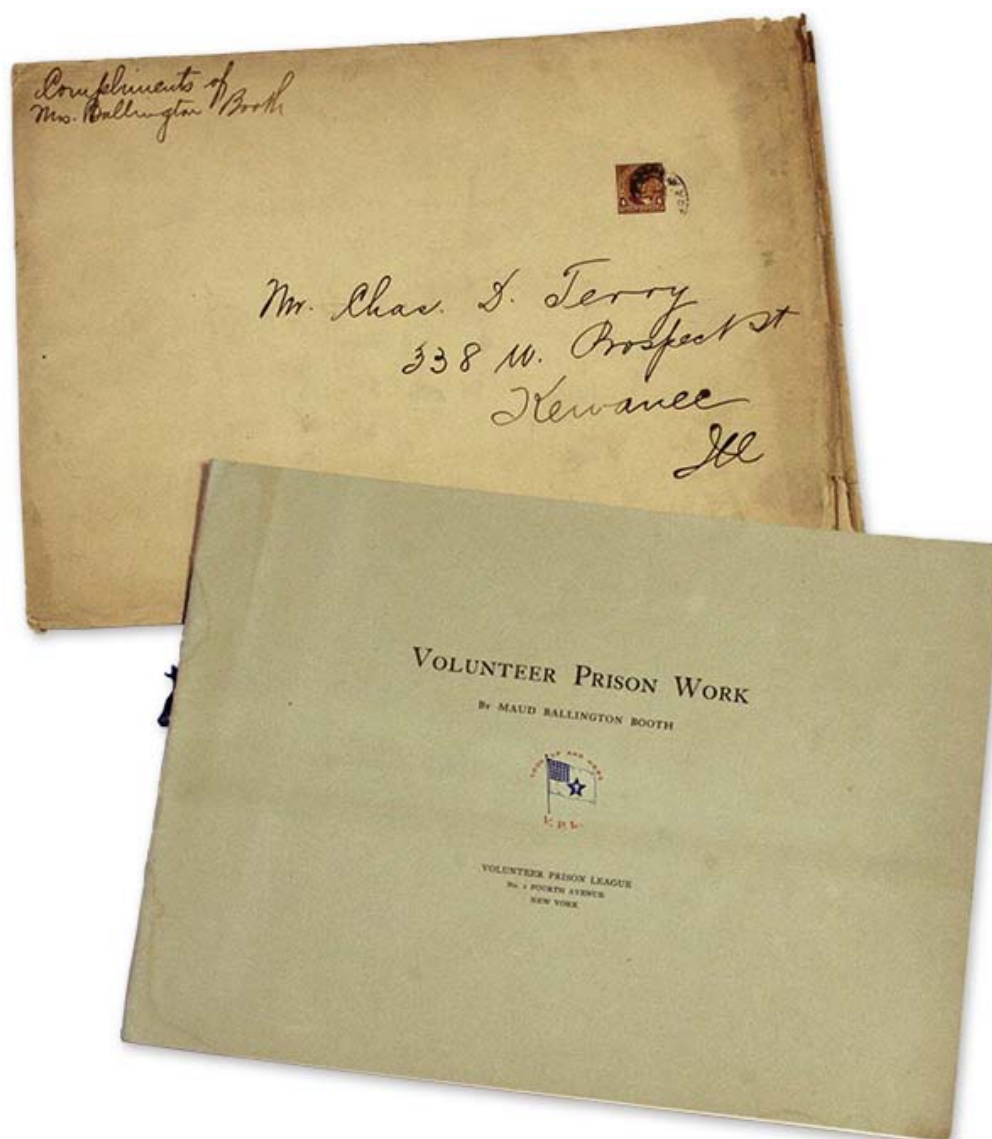 Compliments of
Mrs. Ballington Booth
Mr. Chas. D. Terry
338 W. Prospect St
Kewanee
Ill
VOLUNTEER PRISON WORK
BY MAUD BALLINGTON BOOTH
LOOK UP AND HOPE
V. P. L.
VOLUNTEER PRISON LEAGUE
No. 1 FOURTH AVENUE
NEW YORK